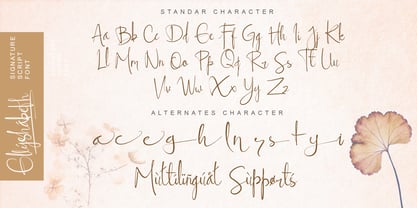 SIGNATURE
SCRIPT
FONT
STANDAR CHARACTER
Aa Bb Cc Dd Ee Ff Gg Hh Ii Jj Kk
Ll Mm Nn Oo Pp Qq Rr Ss Tt Uu
Vv Ww Xx Yy Zz
ALTERNATES CHARACTER
a c e g h l n r s t y i
Multilingual Supports